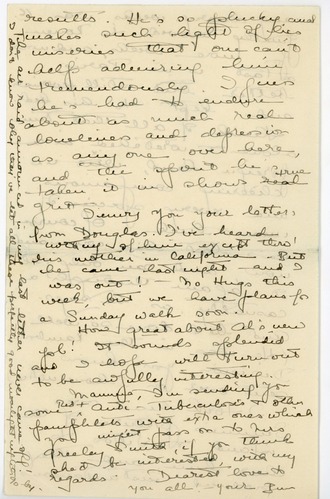 results. He's so plucky and
makes such light of his
miseries that one can't
help admiring him
tremendously. I guess
he's had to endure
about as much real
loneliness and depression
as any one over here,
and the spirit he
taken it in shows real true
grit
I envy you your letters
from Douglas. I've heard
nothing of him except thro'
his mother in California. But
he came last night - and I
was out! - No Hugs this
week, but we have plans for
a Sunday walk soon.
How great about Al's new
job! It sounds splendid
and I hope will turn out
to be awfully interesting.
Mamma, I'm sending you
some Anti-Tuberculosis + other
pamphlets with extra ones which
you might pass on to Mrs
Greeley Smith if you think
she'd be interested with my
regards. Dearest love to
you all! - Your
The air raid announced in my last letter never came off!
I don't know why they've let all these perfectly good moonlight